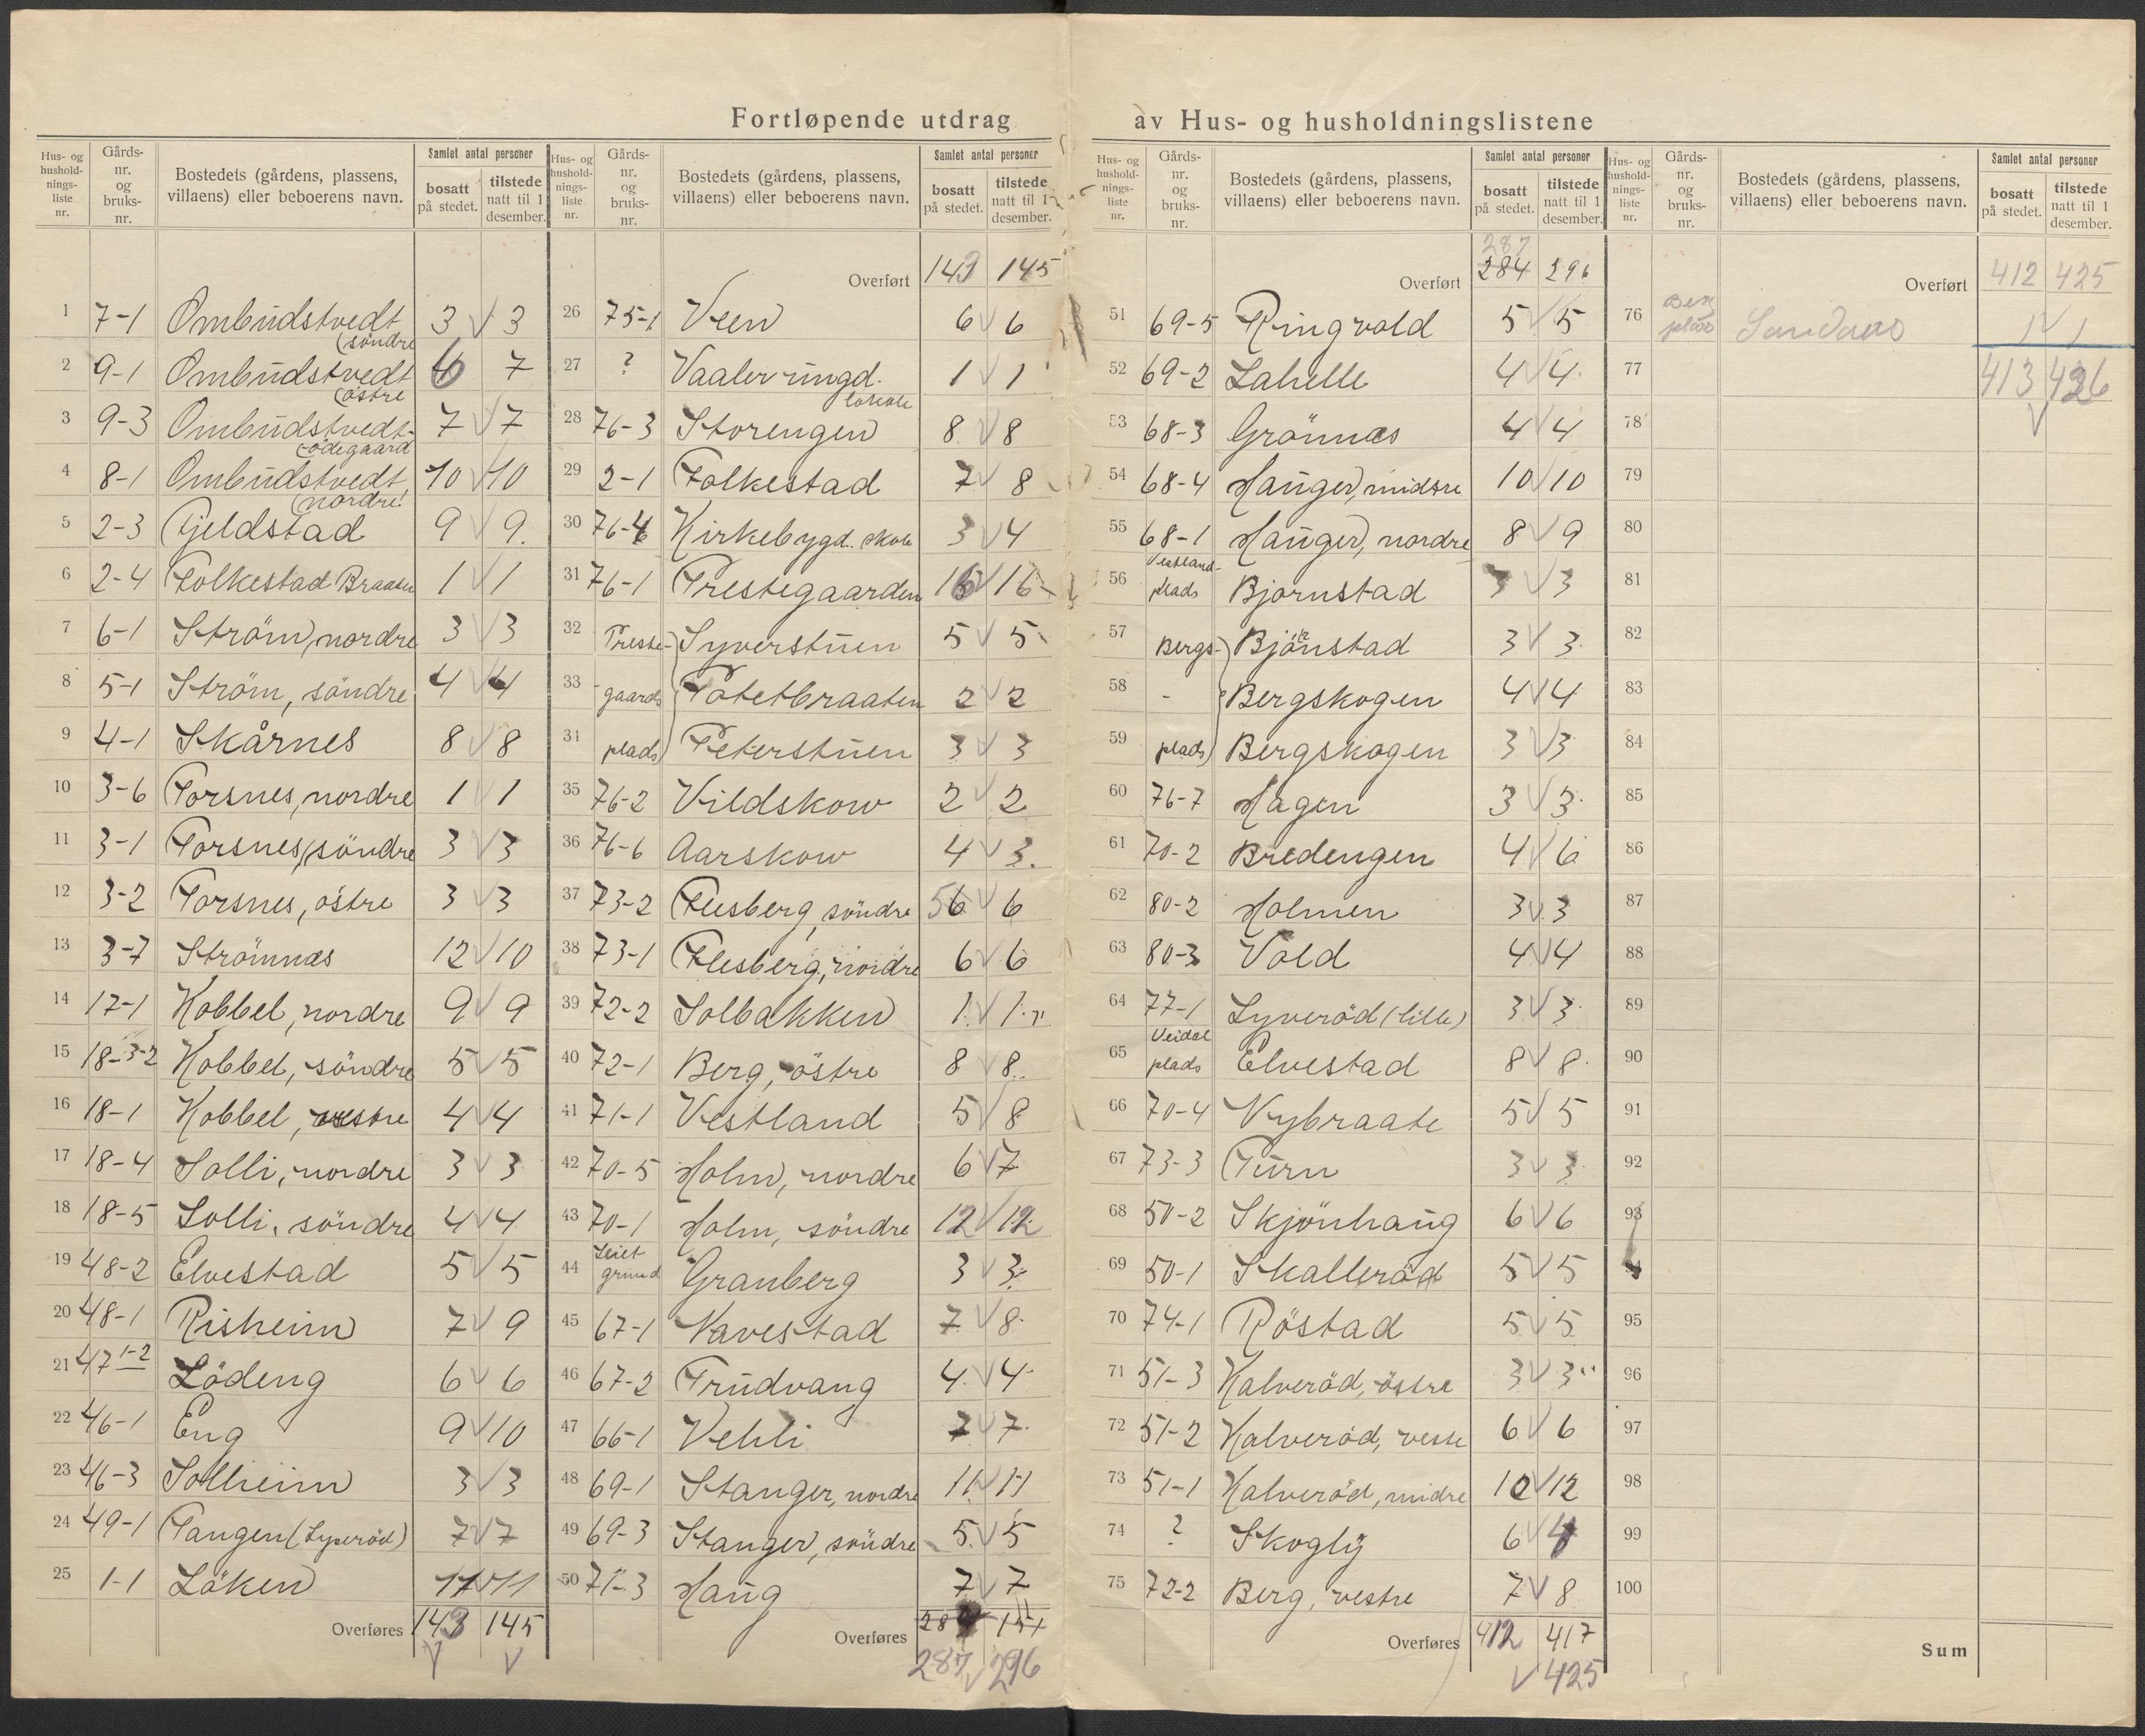 Fortløpende utdrag av Hus- og husholdningslistene
Hus- og hushold-nings-liste nr. | Gårds-nr. og bruks-nr. | Bostedets (gårdens, plassens, villaens) eller beboerens navn. | Samlet antal personer | bosatt på stedet. | tilstede natt til 1 desember.
1 7-1 Ombudstvedt (söndre 3 V 3
2 9-1 Ombudstvedt (östre 6 7
3 9-3 Ombudstvedt- (ödegaard 7 V 7
4 8-1 Ombudstvedt (nordre 10 V 10
5 2-3 Gjeldstad 9 V 9
6 2-4 Folkestad Braaten 1 V 1
7 6-1 Ström, nordre 3 V 3
8 5-1 Ström, söndre 4 V 4
9 4-1 Skårnes 8 V 8
10 3-6 Torsnes, nordre 1 V 1
11 3-1 Torsnes, söndre 3 V 3
12 3-2 Torsnes, östre 3 V 3
13 3-7 Strömnæs 12 V 10
14 17-1 Kobbel, nordre 9 V 9
15 18-3-2 Kobbel, söndre 5 V 5
16 18-1 Kobbel, vestre 4 V 4
17 18-4 Solli, nordre 3 V 3
18 18-5 Solli, söndre 4 V 4
19 48-2 Elvestad 5 V 5
20 48-1 Risheim 7 V 9
21 47 1-2 Lödeng 6 V 6
22 46-1 Eng 9 V 10
23 46-3 Solheim 3 V 3
24 49-1 Tangen (Lyseröd) 7 V 7
25 1-1 Löken 11 V 11
Overføres 143 145
V V
Hus- og hushold-nings-liste nr. | Gårds-nr. og bruks-nr. | Bostedets (gårdens, plassens, villaens) eller beboerens navn. | Samlet antal personer | bosatt på stedet. | tilstede natt til 1 desember.
Overført 143 145
26 75-1 Veen 6 V 6
27 ? Vaaler ungd. lokale 1 V 1
28 76-3 Storengen 8 V 8
29 2-1 Folkestad 7 V 8
30 76-4 Kirkebygd. skole 3 V 4
31 76-1 Prestegaarden 16 V 16
32 Preste- Syverstuen 5 V 5
33 gaards Potetbraaten 2 V 2
31 plads) Peterstuen 3 V 3
35 76-2 Vildskow 2 V 2
36 76-6 Aarskow 4 V 3
37 73-2 Flesberg, söndre 6 V 6
38 73-1 Flesberg, nordre 6 V 6
39 72-2 Solbakken 1 V 1
40 72-1 Berg, östre 8 V 8
41 71-1 Vestland 5 V 8
42 70-5 Holm, nordre 6 V 7
43 70-1 Holm, söndre 12 V 12
44 grund Granberg 3 V 3
45 67-1 Navestad 7 V 8
46 67-2 Trudvang 4 V 4
47 66-1 Vehli 7 V 7
48 69-1 Stanger, nordre 11 V 11
49 69-3 Stanger, söndre 5 V 5
50 71-3 Haug 7 V 7
Overføres 284 151
287 V 296
Hus- og hushold-nings-liste nr. | Gårds-nr. og bruks-nr. | Bostedets (gårdens, plassens, villaens) eller beboerens navn. | Samlet antal personer | bosatt på stedet. | tilstede natt til 1 desember.
287
Overført 284 296
51 69-5 Ringvold 5 V 5
52 69-2 Labelle 4 V 4
53 68-3 Grönnæs 4 V 4
54 68-4 Hauger, midtre 10 V 10
55 68-1 Hauger, nordre 8 V 9
56 Vestland- plads Bjornstad 3 V 3
57 Bergs- Bjönstad 3 V 3
58 - Bergskogen 4 V 4
59 plads) Bergskogen 3 V 3
60 76-7 Hagen 3 V 3
61 70-2 Bredengen 4 V 6
62 80-2 Holmen 3 V 3
63 80-3 Vold 4 V 4
64 77-1 Lyseröd (lille) 3 V 3
65 Veidal plads Elvestad 8 V 8
66 70-4 Nybraate 5 V 5
67 73-3 Turn 3 V 3
68 50-2 Skjönhaug 6 V 6
69 50-1 Skalleröd 5 V 5
70 74-1 Röstad 5 V 5
71 51-3 Kalveröd, östre 3 V 3
72 51-2 Kalveröd, vestre 6 V 6
73 51-1 Kalveröd, midre 10 V 12
74 ? Skogly 6 V 4
75 72-2 Berg, vestre 7 V 8
Overføres 412 417
V 425
Hus- og hushold-nings-liste nr. | Gårds-nr. og bruks-nr. | Bostedets (gårdens, plassens, villaens) eller beboerens navn. | Samlet antal personer | bosatt på stedet. | tilstede natt til 1 desember.
Overført 412 425
76 plass Sandaas 1 V 1
77 413 426
78 V
79
80
81
82
83
84
85
86
87
88
89
90
91
92
93
94
95
96
97
98
99
100
Sum